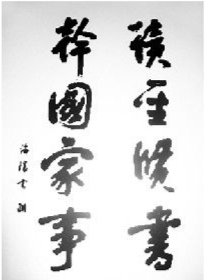 讀圣賢書
幹國家事